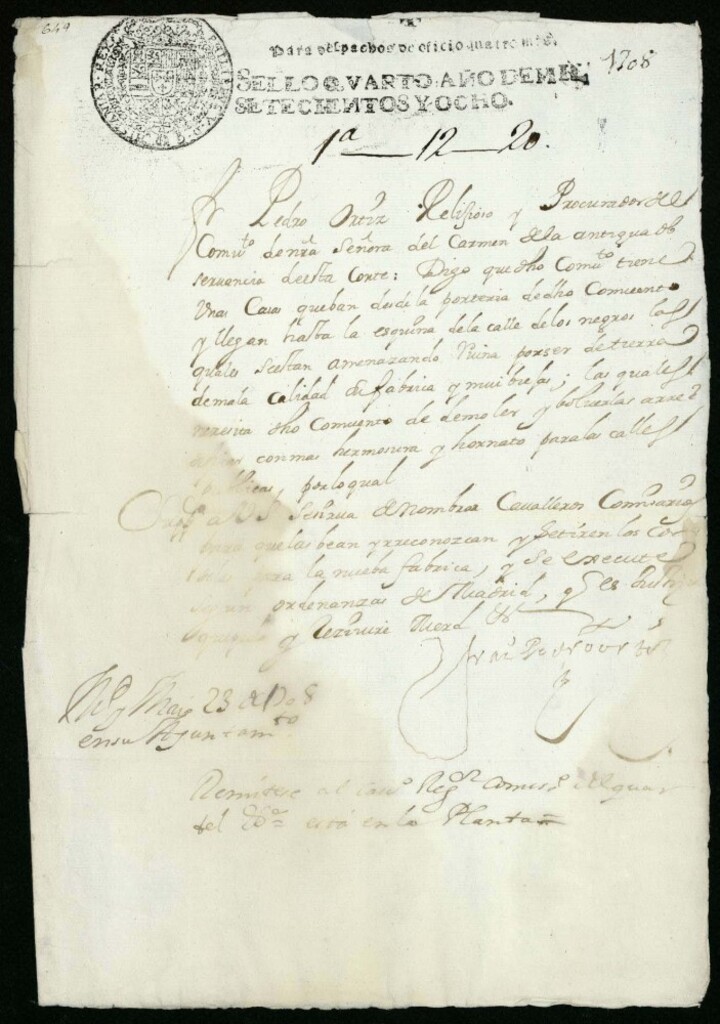 649
Para despachos de oficio quatro mrs.
1708
SELLO QVARTO. AÑO DE MIL
SETECIENTOS Y OCHO.
1ª — 12 — 20.
Fr Pedro Ortiz Religioso y Procurador del
Comuto de nra Señora del Carmen de la antigua ob
servancia de esta Corte: Digo que dho Comuto tiene
Unas Casas que ban desde la porteria de dho Comuento
y llegan hasta la esquina de la calle de los negros las
quales estan amenazando Ruina por ser de tierra
de mala calidad de fabrica y mui biejas; las quales
necesita dho Comuento de demoler y bolverlas a rree
con mas hermosura y hornato para las calles
publicas, por lo qual
a VS se sirua de nombrar Cavalleros Comisarios
para que las bean y rreconozcan y se tiren los cor
deles para la nueba fabrica, y se execute
segun ordenanzas de Madrid, q es justizia
que pido y rezivire merd &
fray Pedro ortiz
Md y Maio 23 de 1708
en su Ayuntamto
Remitese al cauo Regor comiso del quar
tel est está en la Planta